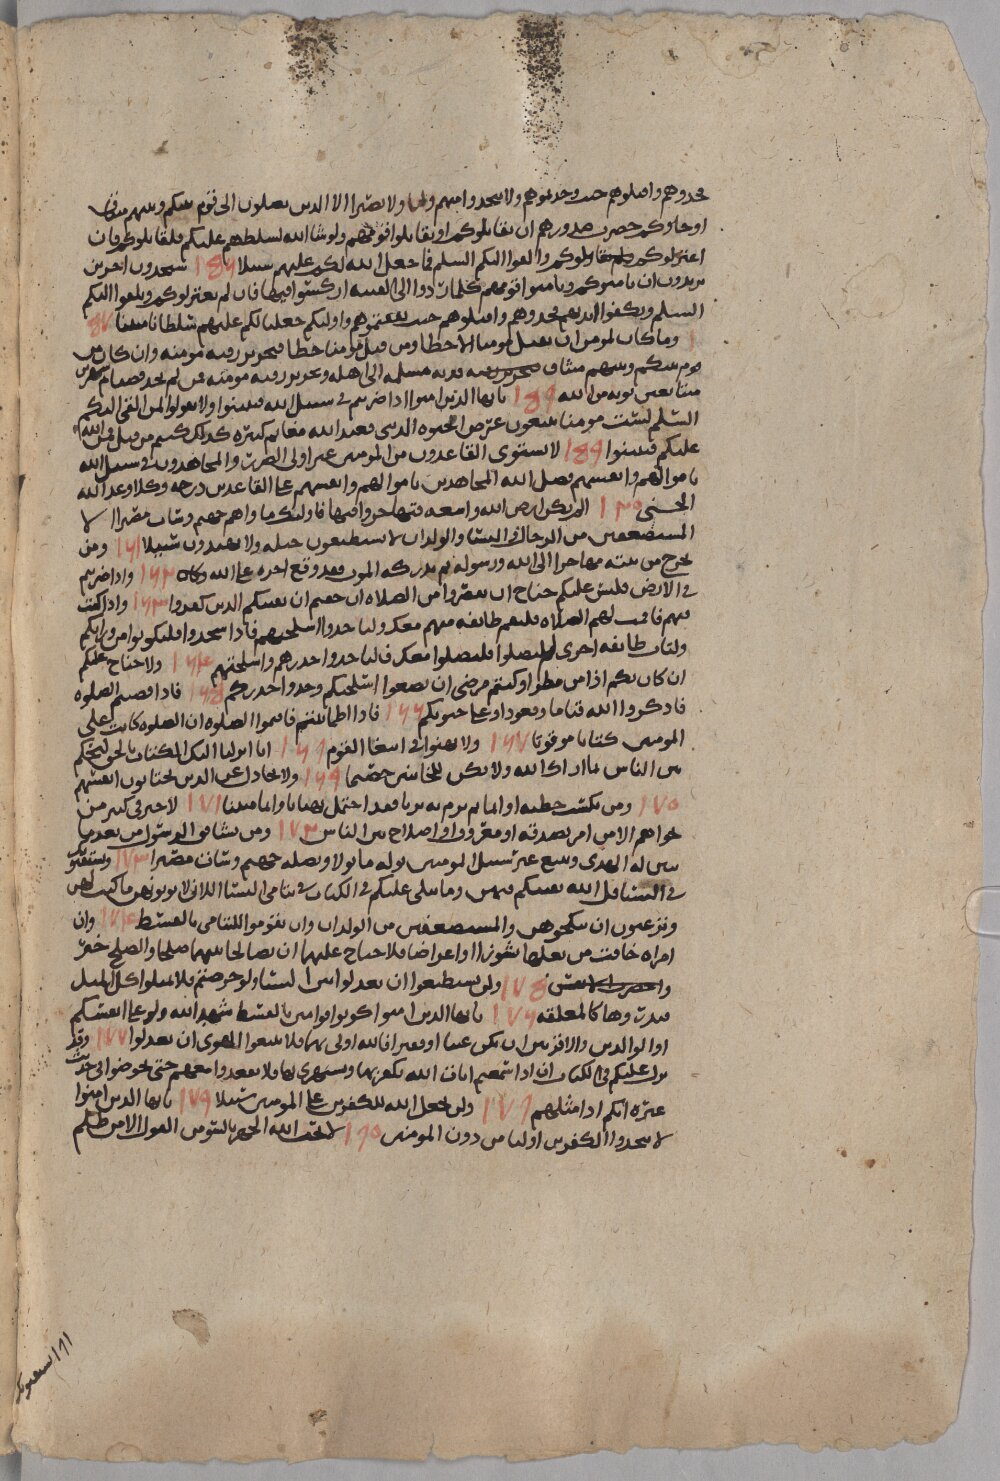 فخدوهم واقتلوهم حيث وجدتموهم ولا تتخدوا منهم وليا ولا نصيرا الا الدين يصلون الى قوم بينكم وبينهم ميثاق
او جاوكم حصرت صدورهم ان يقاتلوكم او يقاتلوا قومهم ولو شا الله لسلطهم عليكم فلقاتلوكم فان
اعتزلوكم ولم يقاتلوكم والقوا اليكم السلم فما جعل الله لكم عليهم سبيلا ستجدون اخرين
يريدون ان يامنوكم ويامنوا قومهم كلما ردوا الى الفتنه اركسوا فيها فان لم يعتزلوكم ويلقوا اليكم
السلم ويكفوا ايديهم فخدوهم واقتلوهم حيث ثقفتموهم واوليكم جعلنا لكم عليهم سلطانا مبينا
وما كان لمومن ان يقتل مومنا الا خطا ومن قتل مومنا خطا فتحرير رقبه مومنه وان كان من
قوم بينكم وبينهم ميثاق فديه مسلمه الى اهله وتحرير رقبه مومنه فمن لم يجد فصيام شهرين
متتابعين توبه من الله يايها الدين امنوا ادا ضربتم في سبيل الله فتبينوا ولا تقولوا لمن القى اليكم
السلم لست مومنا تبتغون عرض الحيوه الدنيى فعند الله مغانم كثيره كدلك كنتم من قبل فمن الله
عليكم فتبينوا لا يستوى القاعدون من المومنين غير اولى الضرر والمجاهدون في سبيل الله
باموالهم وانفسهم فضل الله المجاهدين باموالهم وانفسهم على القاعدين درجه وكلا وعد الله
الحسنى الم تكن ارض الله واسعه فتهاجروا فيها فاوليك ماواهم جهنم وسات مصيرا الا
المستضعفين من الرجال والنسا والولدان لا يستطيعون حيله ولا يهتدون سبيلا ومن
يخرج من بيته مهاجرا الى الله ورسوله ثم يدركه الموت فقد وقع اجره على الله وكان وادا ضربتم
في الارض فليس عليكم جناح ان تقصروا من الصلاه ان خفتم ان يفتنكم الدين كفروا وادا كنت
فيهم فاقمت لهم الصلاه فلتقم طايفه منهم معك ولياخدوا اسلحتهم فادا سجدوا فليكونوا من ورايكم
ولتات طايفه اخرى لم يصلوا فليصلوا معك ولياخدوا حدرهم واسلحتهم ولا جناح عليكم
ان كان بكم ادا من مطر او كنتم مرضى ان تضعوا اسلحتكم وخدوا حدركم فادا قضيتم الصلوه
فادكروا الله قياما وقعودا وعلى جنوبكم فادا اطماننتم فاقيموا الصلوه ان الصلوه كانت على
المومنين كتابا موقوتا ولا تهنوا في ابتغا القوم انا انزلنا اليك الكتاب بالحق لتحكم
بين الناس بما اراك الله ولا تكن للخاينين خصيما ولا تجادل عن الدين يختانون انفسهم
ومن يكسب خطيه او اثما ثم يرم به بريا فقد احتمل بهتانا واثما مبينا لا خير في كثير من
نجواهم الا من امر بصدقه او معروف او اصلاح بين الناس ومن يشاقق الرسول من بعد ما
تبين له الهدى ويتبع غير سبيل المومنين نوله ما تولا ونصله جهنم وسات مصيرا ويستفتونك
في النسا قل الله يفتيكم فيهن وما يتلى عليكم في الكتاب في يتامى النسا اللاتي لا توتونهن ما كتب لهن
وترغبون ان تنكحوهن والمستضعفين من الولدان وان تقوموا لليتامى بالقسط وان
امراه خافت من بعلها نشوزا او اعراضا فلا جناح عليهما ان يصالحا بينهما صلحا والصلح خير
واحضرت الانفس ولن تستطيعوا ان تعدلوا بين النسا ولو حرصتم فلا تميلوا كل الميل
فتدروها كالمعلقه يايها الدين امنوا كونوا قوامين بالقسط شهدا لله ولو على انفسكم
او الوالدين والاقربين ان يكن غنيا او فقيرا فالله اولى بهما فلا تتبعوا الهوى ان تعدلوا وقد
نزل عليكم في الكتاب ان ادا سمعتم ايات الله يكفر بها ويستهزى بها فلا تقعدوا معهم حتى يخوضوا في حديث
غيره انكم ادا مثلهم ولن يجعل الله للكفرين على المومنين سبيلا يايها الدين امنوا
لا تتخدوا الكفرين اوليا من دون المومنين لا يحب الله الجهر بالسو من القول الا من ظلم